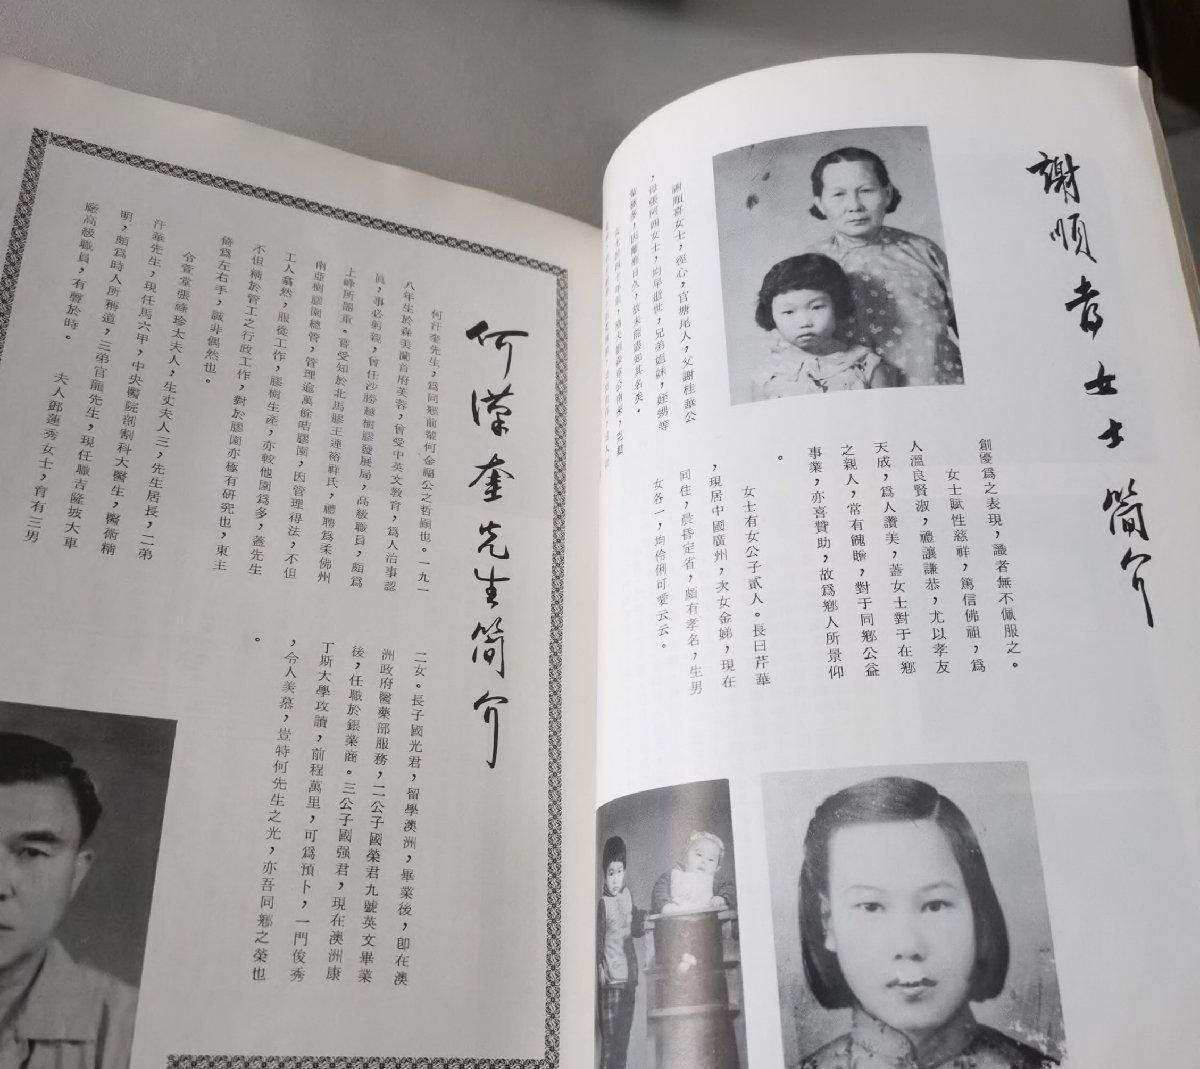 謝順喜女士簡介
謝順喜女士,逕心,官塘尾人,父謝桂華公
,母張阿四女士,均早逝世,兄弟姐妹,姪甥等
創優爲之表現,識者無不佩服之。
女士賦性慈祥,篤信佛祖,爲
人溫良賢淑,禮讓謙恭,尤以孝友
天成,爲人讚美,蓋女士對于在鄉
之親人,常有餽贈,對于同鄉公益
事業,亦喜贊助,故爲鄉人所景仰
。
女士有女公子貳人。長曰芹華
,現居中國廣州,次女金娣,現在
同住,晨昏定省,頗有孝名,生男
女各一,均伶俐可愛云云。
何漢奎先生簡介
何汗奎先生,爲同鄉前輩何金福公之哲嗣也。一九一
八年生於森美蘭首府芙蓉,曾受中英文教育,爲人治事認
眞,事必躬親,曾任沙勝越樹膠發展局,高級職員,頗爲
上峰所器重。嘗受知於北馬膠王連裕祥氏,禮聘爲柔佛州
南亞樹膠園總管,管理逾萬餘咭膠園,因管理得法,不但
工人翕然,服從工作,膠樹生產,亦較他園爲多,蓋先生
不但精於管工之行政工作,對於膠園亦極有研究也,東主
倚爲左右手,誠非偶然也。
令萱堂張緣珍太夫人,生丈夫人三,先生居長,二弟
汗華先生,現任馬六甲,中央醫院剖割科大醫生,醫術精
明,頗爲時人所稱道,三弟官龍先生,現任職吉隆坡大車
廠高級職員,有聲於時。
夫人鄧蓮秀女士,育有三男
二女。長子國光君,留學澳洲,畢業後,卽在澳
洲政府醫藥部服務,二公子國榮君九號英文畢業
後,任職於銀業商。三公子國强君,現在澳洲康
丁斯大學攻讀,前程萬里,可爲預卜,一門俊秀
,令人羡慕,豈特何先生之光,亦吾同鄉之榮也
。